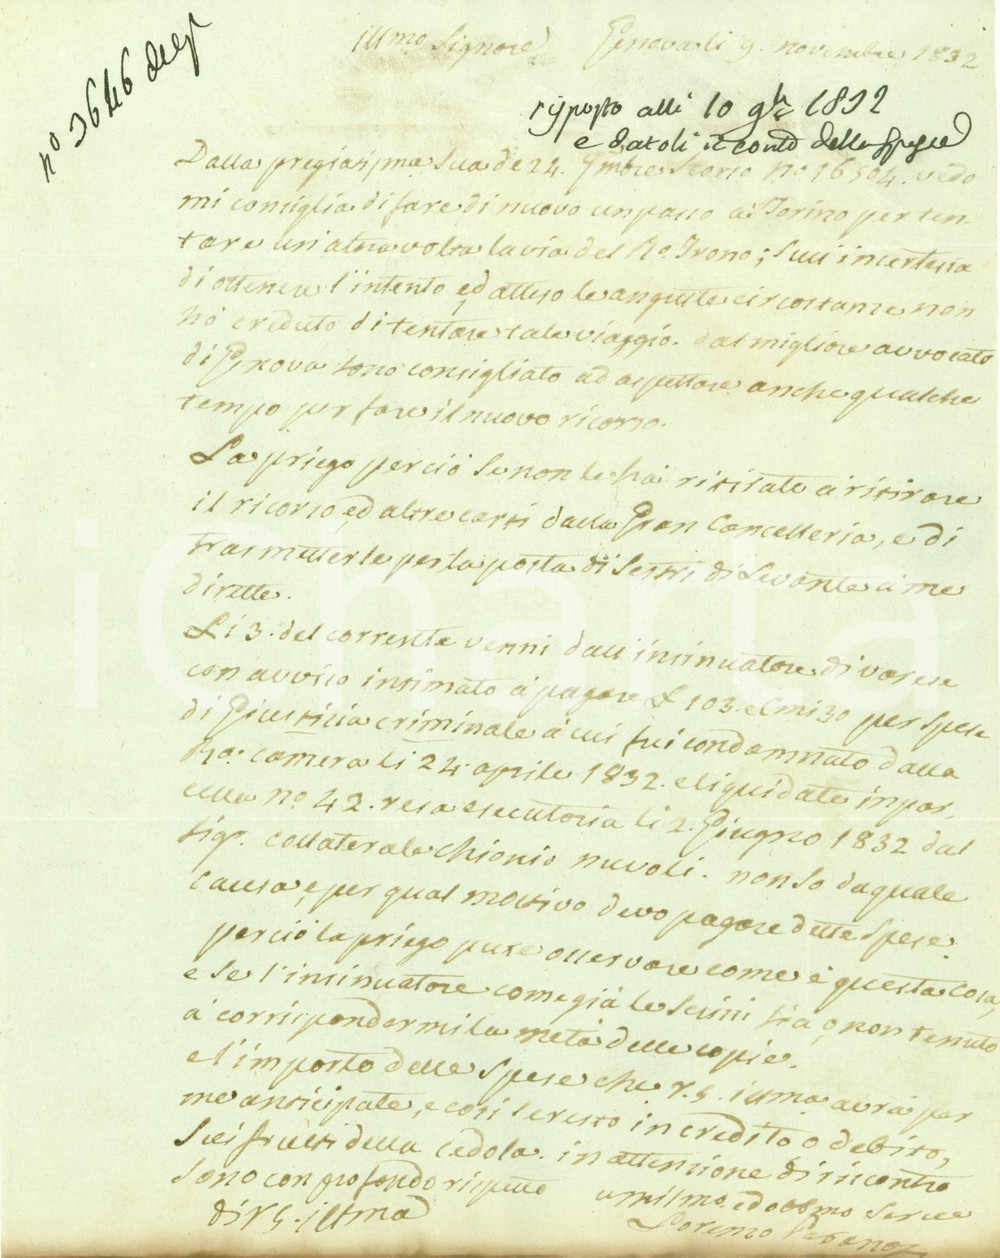 no 3646 degl
Illmo Signore Genova li 9. novembre 1832
risposto alli 10 9bre 1832
e datoli il conto delle spese
Dalla pregiatissima Sua de 24. scorso no 16504. vedo
mi consiglia di fare di nuovo un passo a Torino per ten-
tare un'altra volta la via del Ro. Trono; Sull'incertezza
di ottenere l'intento ed atteso le anguste circostanze non
hò creduto di tentare tale viaggio. dal migliore avvocato
di Genova sono consigliato ad aspettare anche qualche
tempo per fare il nuovo ricorso.
La priego perciò se non le hà ritirate a ritirare
il ricorso, ed altre carti dalla Gran Cancelleria, e di
trasmetterle per la posta di Sestri di Levante a me
dirette.
Li 3. del corrente venni dall'insinuatore di Varese
con avviso intimato à pagare £ 103. e Cmi 30 per spese
di Giustizia criminale a cui fui condannato dalla
Ra. camera li 24. aprile 1832. e liquidate in par-
cella no 42. resa esecutoria li 2. Giugno 1832 dal
Sigr. collaterale Chionio nuvoli. non so da quale
Causa, e per qual mottivo devo pagare dette spese
perciò la priego pure osservare come è questa Cosa,
e se l'insinuatore come già le scrissi sia, o non tenuto
à corrispondermi la metà delle copie.
e l'importo delle spese che V. S. illma. avrà per
me anticipate, e così se resto in credito o debito,
Sui frutti della Cedola. in attenzione di riscontro
sono con profondo rispetto
di V S. illma
umilmo. ed obbmo Servo
Lorenzo
iCharta